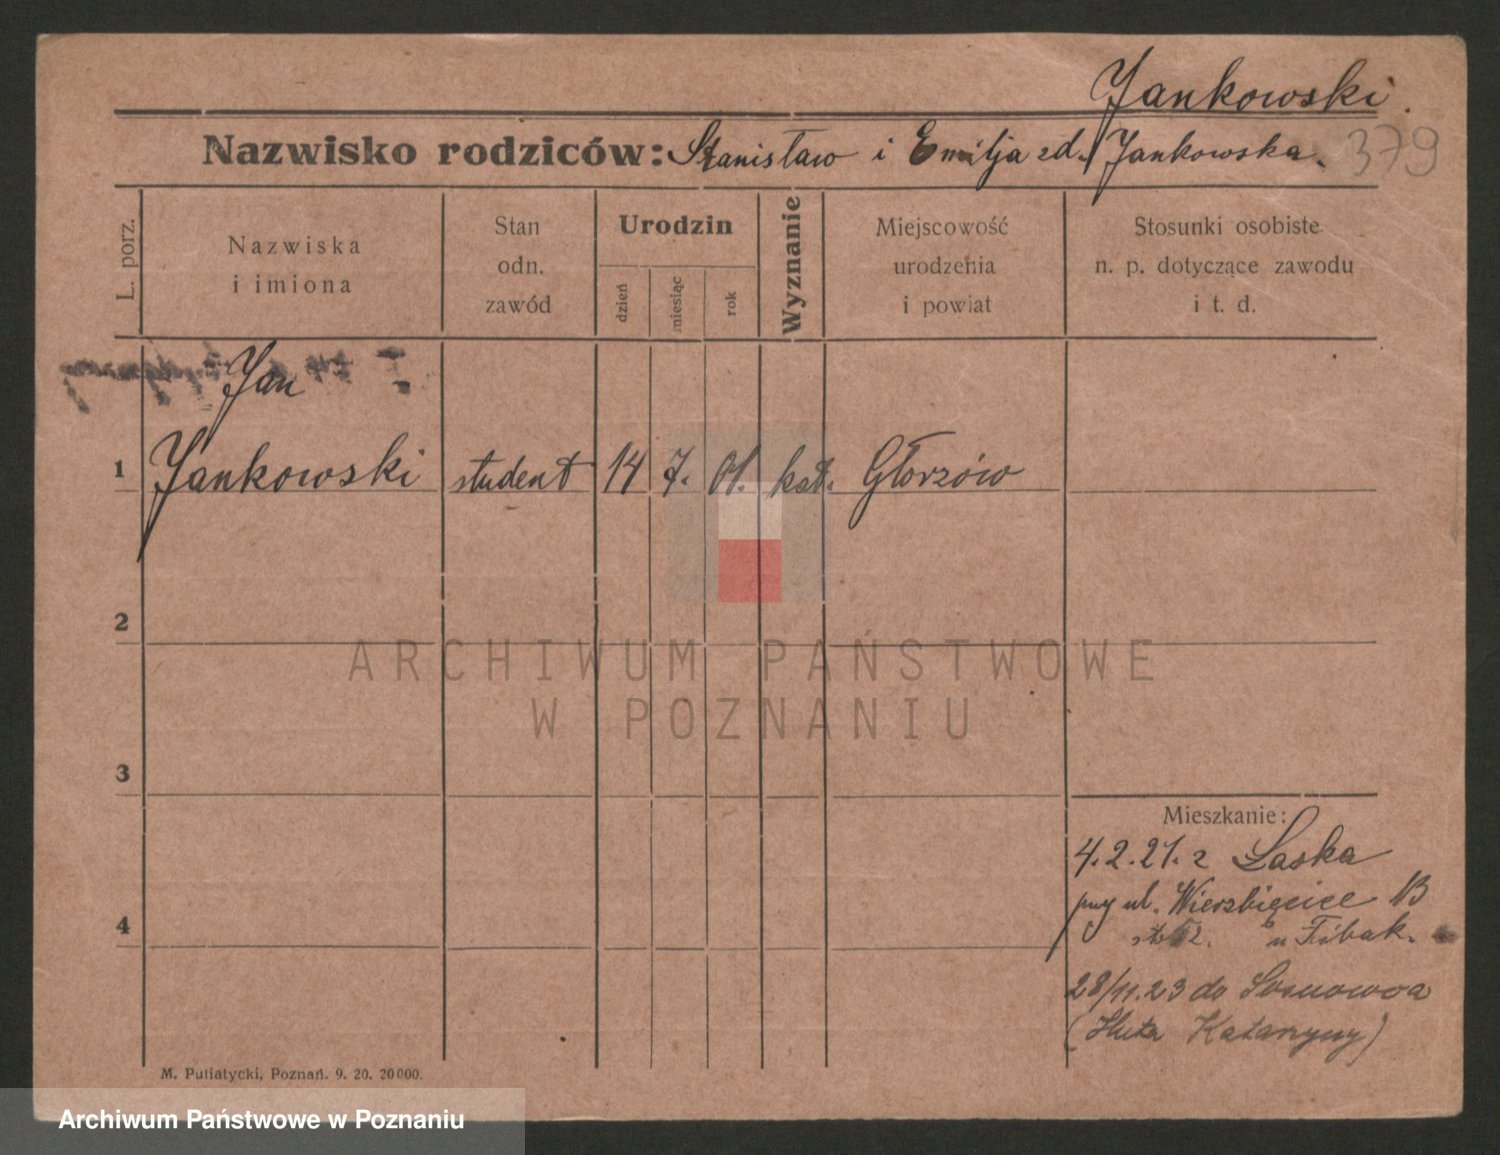 Jankowski.
Nazwisko rodziców: Stanisław i Emilja zd. Jankowska. 379
L. porz.
Nazwiska i imiona
Stan odn. zawód
Urodzin
dzień
miesiąc
rok
Wyznanie
Miejscowość urodzenia i powiat
Stosunki osobiste n. p. dotyczące zawodu i t. d.
Jan
1 Jankowski student 14 7. 01. kat. Głorzów
2
ARCHIWUM PAŃSTWOWE
W POZNANIU
3
Mieszkanie:
4.2.21. z Łaska
przy ul. Wierzbięcice 13
4
u Fibak.
28/11.23 do Sosnowca
(Huta Katarzyny)
M. Putiatycki, Poznań. 9. 20. 20000.
Archiwum Państwowe w Poznaniu